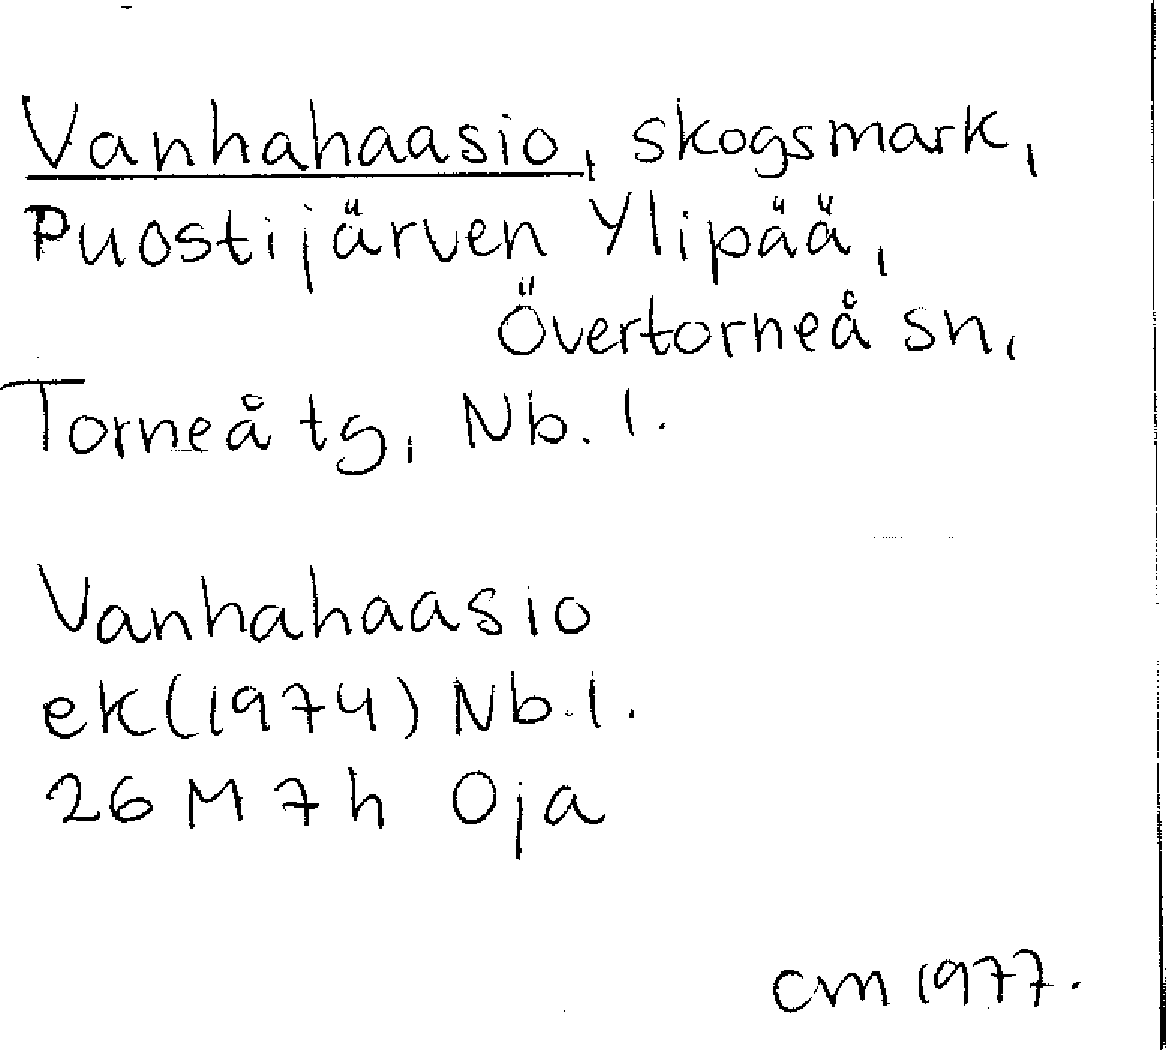 Vanhahaasio, skogsmark,
Puostijärven Ylipää,
Övertorneå sn,
Torneå tg, Nb. l.
Vanhahaasio
ek(1974) Nb.l.
26 M 7 h Oja
CM 1977.